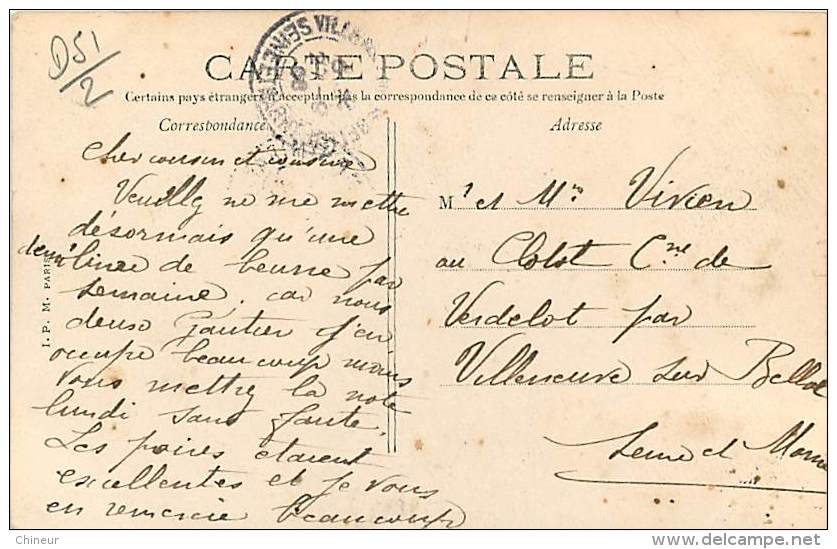 D51/2
CARTE POSTALE
Certains pays étrangers n'acceptant pas la correspondance de ce côté se renseigner à la Poste
Correspondance
Cher cousin et cousine
Veuillez ne me mettre
désormais qu'une
demi livre de beurre par
semaine, car nous
deux Gautier j'en
occupe beaucoup moins
Vous mettrez la note
lundi sans faute.
Les poires étaient
excellentes et je vous
en remercie beaucoup
Adresse
Mr et Mme Vivien
au Clost Cne de
Verdelot par
Villeneuve sur Bellot
Seine et Marne
I. P. M. PARIS
Chineur
www.delcampe.net